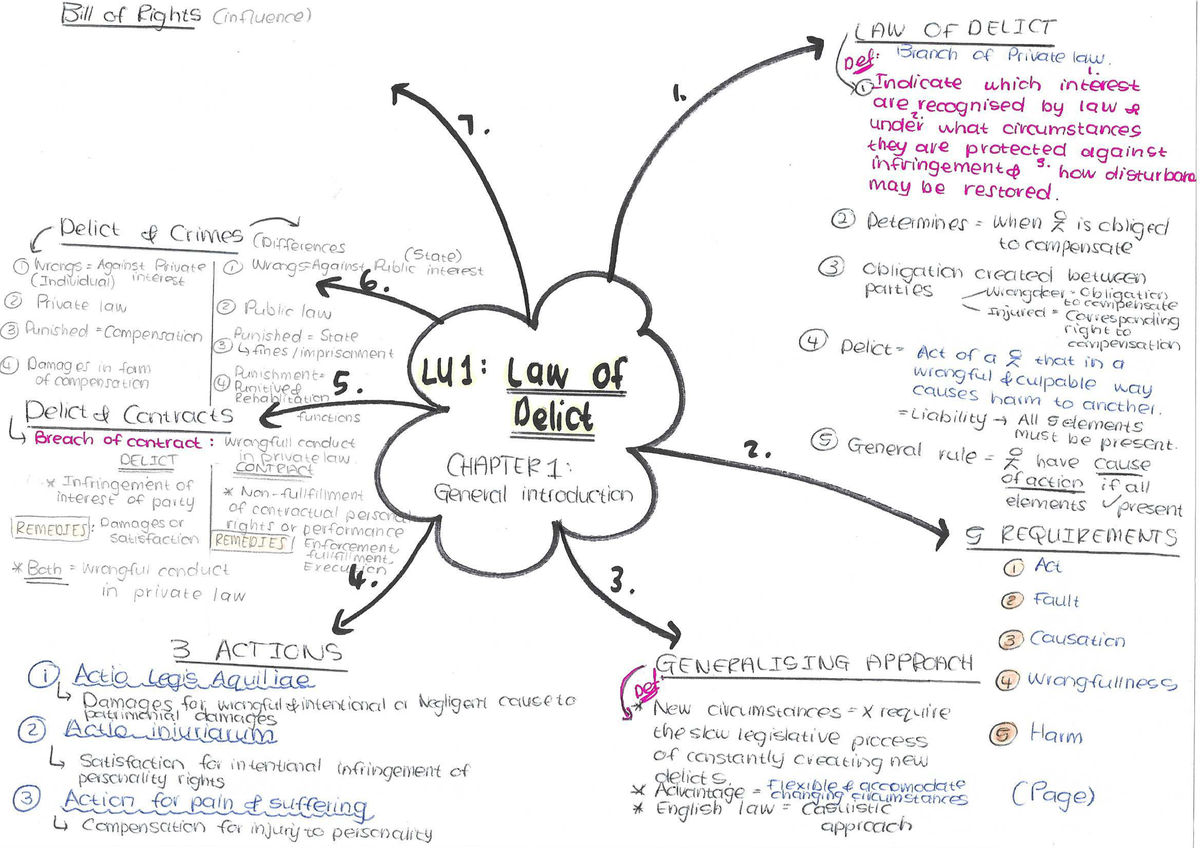 Bill of Rights (influence)
LAW OF DELICT
Def: Branch of Private law.
① Indicate which 1. interest
are recognised by law &
2. under what circumstances
they are protected against
infiringement & 3. how disturbane
may be restored.
② Determines = when is obliged
to compensate
③ Obligation created between
parties
Wrongdoer = Obligation
to compensate
Injured = Corresponding
right to
compensation
④ Delict = Act of a that in a
wrongful & culpable way
causes harm to another.
= Liability → All 5 elements
must be present.
⑤ General rule = have cause
of action if all
elements ✓ present
1.
2.
3.
4.
5.
6.
7.
LU1: Law of
Delict
CHAPTER 1:
General introduction
5 REQUIREMENTS
① Act
② Fault
③ Causation
④ Wrongfullness
⑤ Harm
(Page)
GENERALISING APPROACH
Def
* New circumstances = x require
the slow legislative process
of constantly creating new
delicts.
* Advantage = Flexible & accomodate
changing circumstances
* English law = Casuistic
approach
3 ACTIONS
① Actio Legis Aquiliae
↳ Damages for wrongful & intentional or Negligent cause to
patrimonial damages
② Actio iniuriarum
↳ Satisfaction for intentional infringement of
personality rights
③ Action for pain & suffering
↳ Compensation for injury to personality
Delict & Contracts
↳ Breach of contract: Wrongfull conduct
in private law
DELICT
* Infringement of
interest of party
REMEDIES: Damages or
satisfaction
CONTRACT
* Non-fullfillment
of contractual personal
rights or performance
REMEDIES Enforcement
fullfillment
Execution
* Both = wrongful conduct
in private law
Delict & Crimes (Differences
① Wrongs = Against Private
(Individual) interest
② Private law
③ Punished = Compensation
④ Damages in form
of compensation
(State)
① Wrongs = Against Public interest
② Public law
③ Punished = State
↳ fines/imprisonment
④ Punishment =
Punitive &
Rehabilitation
functions